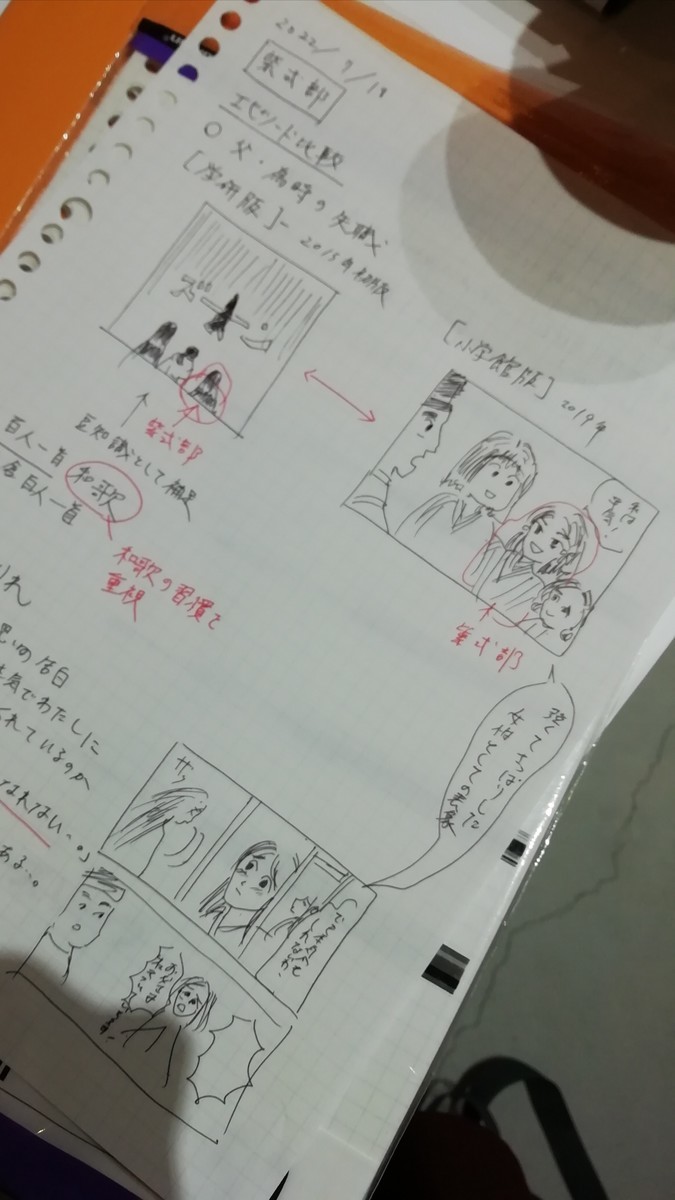 2022/9/19
紫式部
エピソード比較
○ 父・為時の失職
[学研版] - 2015年初版
[小学館版] 2019年
私は
平気！
紫式部
豆知識として補足
百人一首
百人一首
和歌
和歌の習慣を
重視
紫式部
強くてさっぱりした
女性としての表象
告白
本気でわたしに
くれているのか
なれない…。」
ある…。
サッ